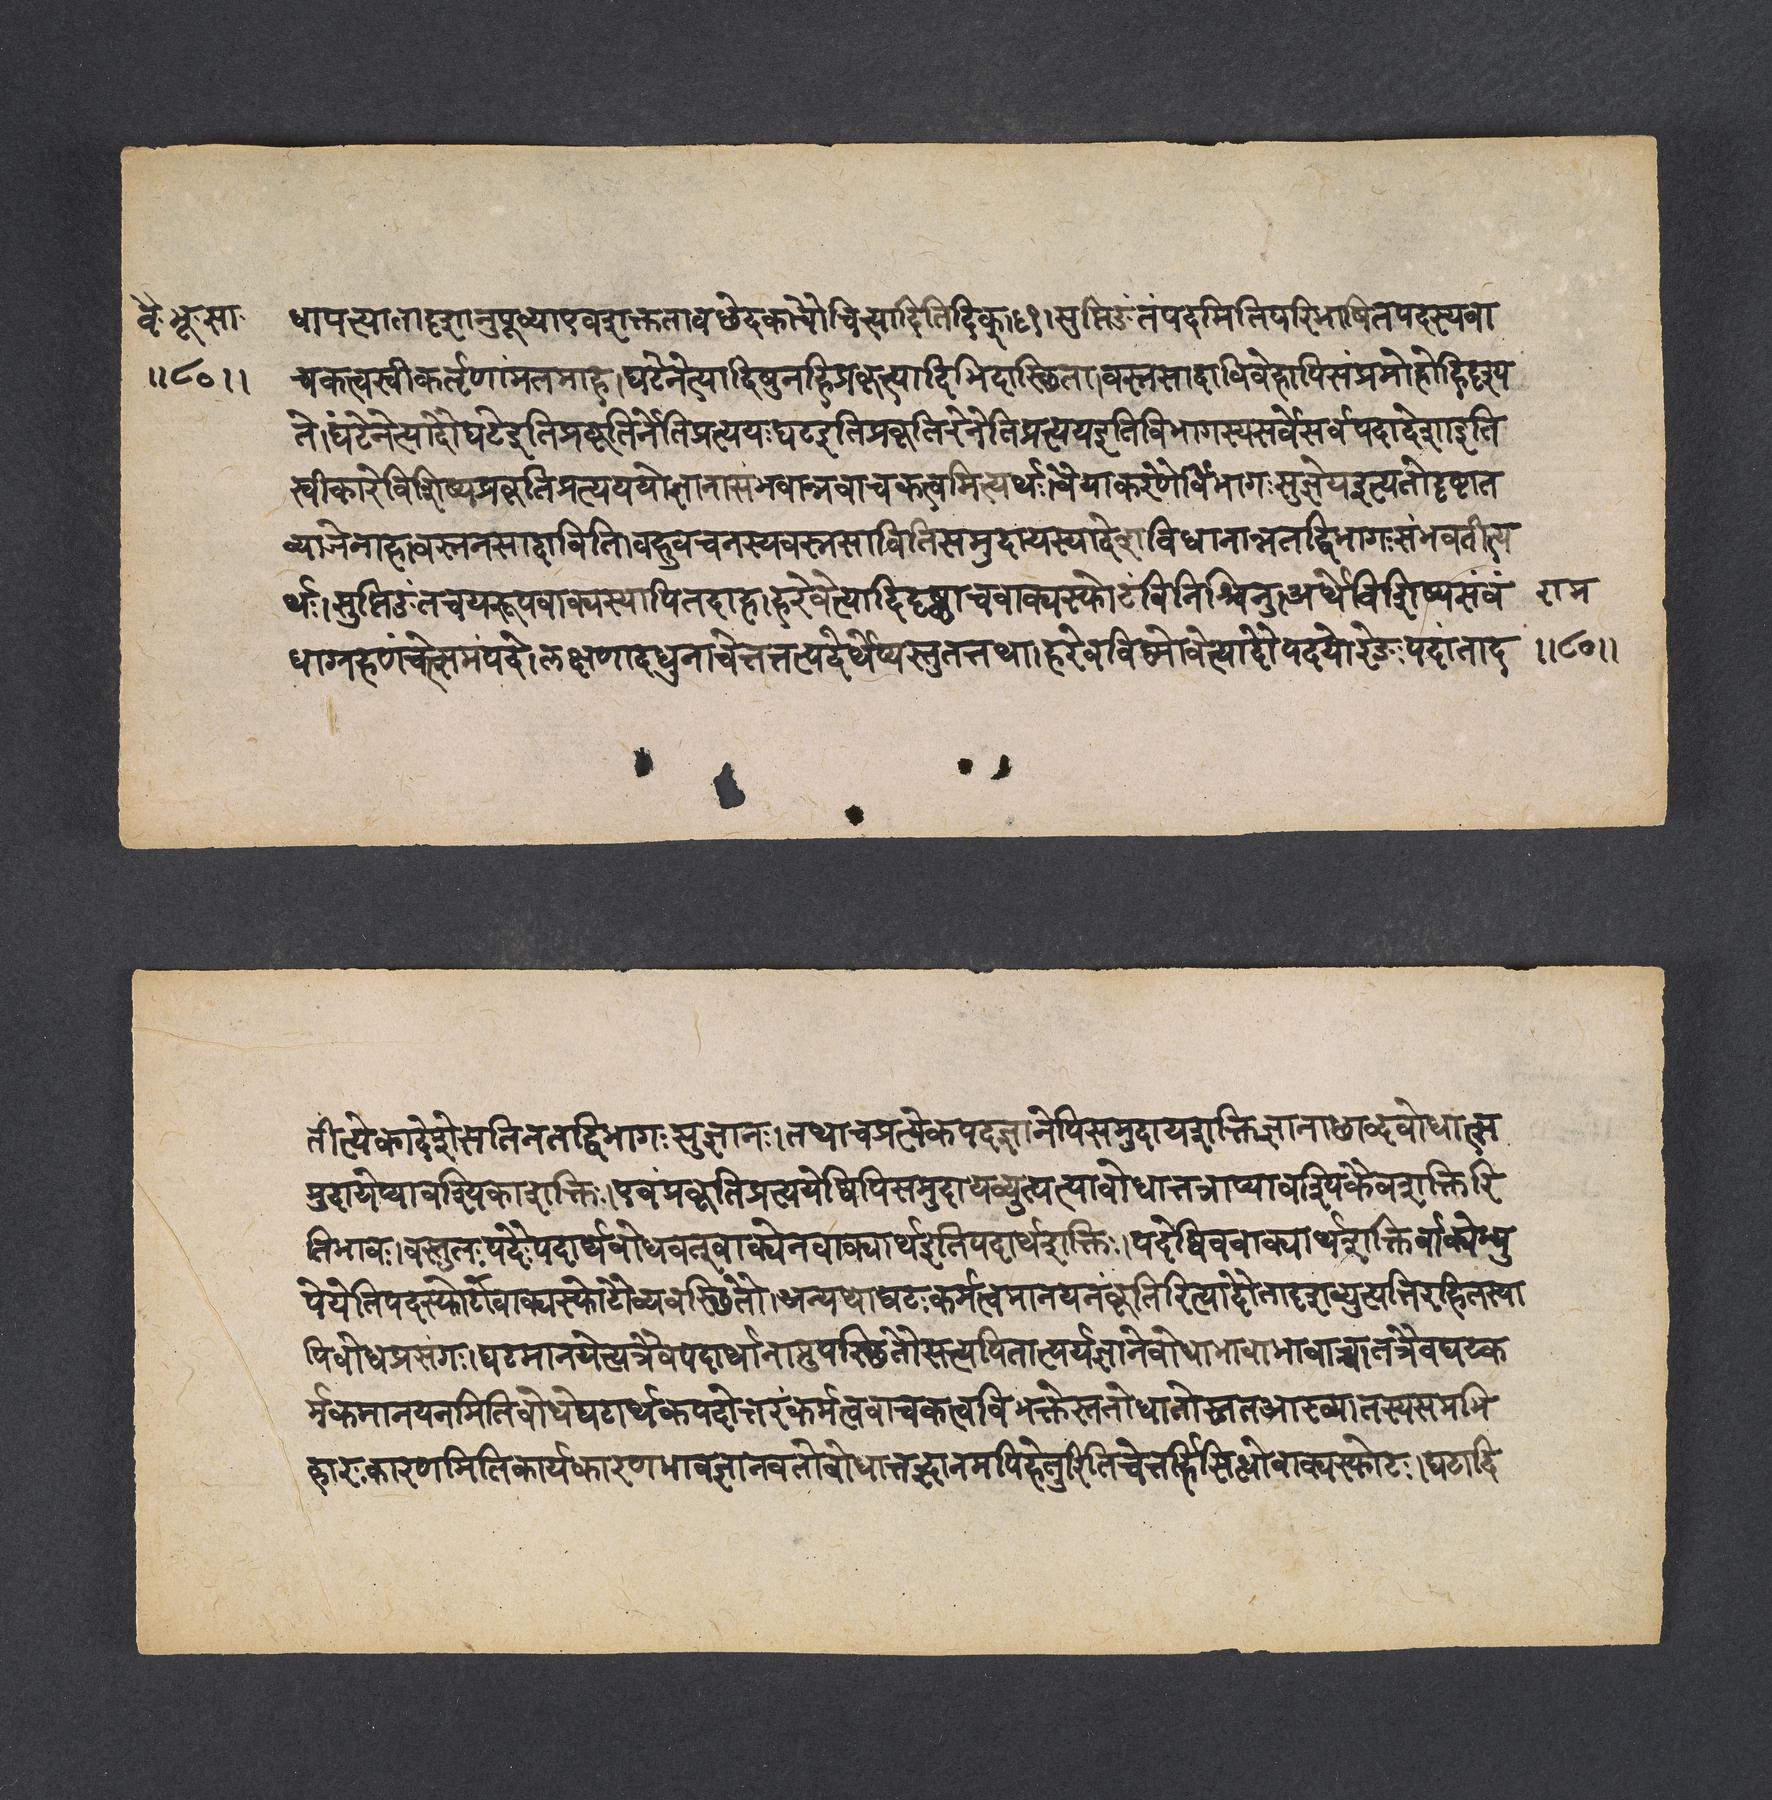 वै॰ भू॰ सा॰
॥८०॥
धापत्त्यातादृशानुपूर्व्याएवशक्ततावछेदकत्वौचित्यादितिदिक् ।६१। सुप्तिङंतंपदमितिपरिभाषितपदस्यवा
चकत्वस्वीकर्तॄणांमतमाह । घटेनेत्यादिषुनहिप्रकृत्यादिभिदास्थिता । वस्नसादाविवेहापिसंप्रमोहोहिदृश्य
ते । घटेनेत्यादौघटेइतिप्रकृतिर्नेतिप्रत्ययः घटइतिप्रकृतिरेनेतिप्रत्ययइतिविभागस्यसर्वेसर्वपदादेशाइति
स्वीकारेविशिष्यप्रकृतिप्रत्यययोर्ज्ञानासंभवान्नवाचकत्वमित्यर्थः । वैयाकरणैर्विभागः सुज्ञेयइत्यतोदृष्टांत
व्याजेनाह । वस्नसादाविति । वहुवचनस्यवस्नसावितिसमुदायस्यादेशविधानान्नतद्विभागः संभवतीत्य
र्थः । सुप्तिङंतचयरूपवाक्यस्यापितदाह । हरेवेत्यादिदृष्ट्वाचवाक्यस्फोटंविनिश्चिनु । अर्थेविशिष्यसंवं
धाग्रहणंचेत्समंपदे । लक्षणादधुनाचेत्तत्पदेर्थेप्यस्तुतत्तथा । हरेवविष्णोवेत्यादौपदयोरेङः पदांताद
राम
॥८०॥
तीत्येकादेशेसतिनतद्विभागः सुज्ञानः । तथाचप्रत्येकपदज्ञानेपिसमुदायशक्तिज्ञानाछाब्दबोधात्स
मुदायेप्यावश्यिकाशक्तिः । एवंप्रकृतिप्रत्ययेष्वपिसमुदायव्युत्पत्त्यावोधात्तत्राप्यावश्यिकैवशक्तिरि
तिभावः । वस्तुतः पदैः पदार्थवोधवत्वाक्येनवाक्यार्थइतिपदार्थशक्तिः । पदेष्विववाक्यार्थशक्तिर्वाक्येभ्यु
पेयेतिपदस्फोटौवाक्यस्फोटौव्यवस्थितौ । अन्यथाघटः कर्मत्वमानयनंकृतिरित्यादौतादृशव्युत्पत्तिरहितस्या
पिवोधप्रसंगः । घटमानयेत्यत्रैवपदार्थानामुपस्थितौसत्यपितात्पर्यज्ञानेवोधाभावाभावाच्च । तत्रैवघटक
र्मकमानयनमितिवोधेघटार्थकपदोत्तरंकर्मत्ववाचकत्वविभक्तेस्ततोधातोस्तत आख्यातस्यसमभि
हारः कारणमितिकार्यकारणभावज्ञानवतोवोधात्तज्ज्ञानमपिहेतुरितिचेत्तर्हिसिद्धोवाक्यस्फोटः । घटादि